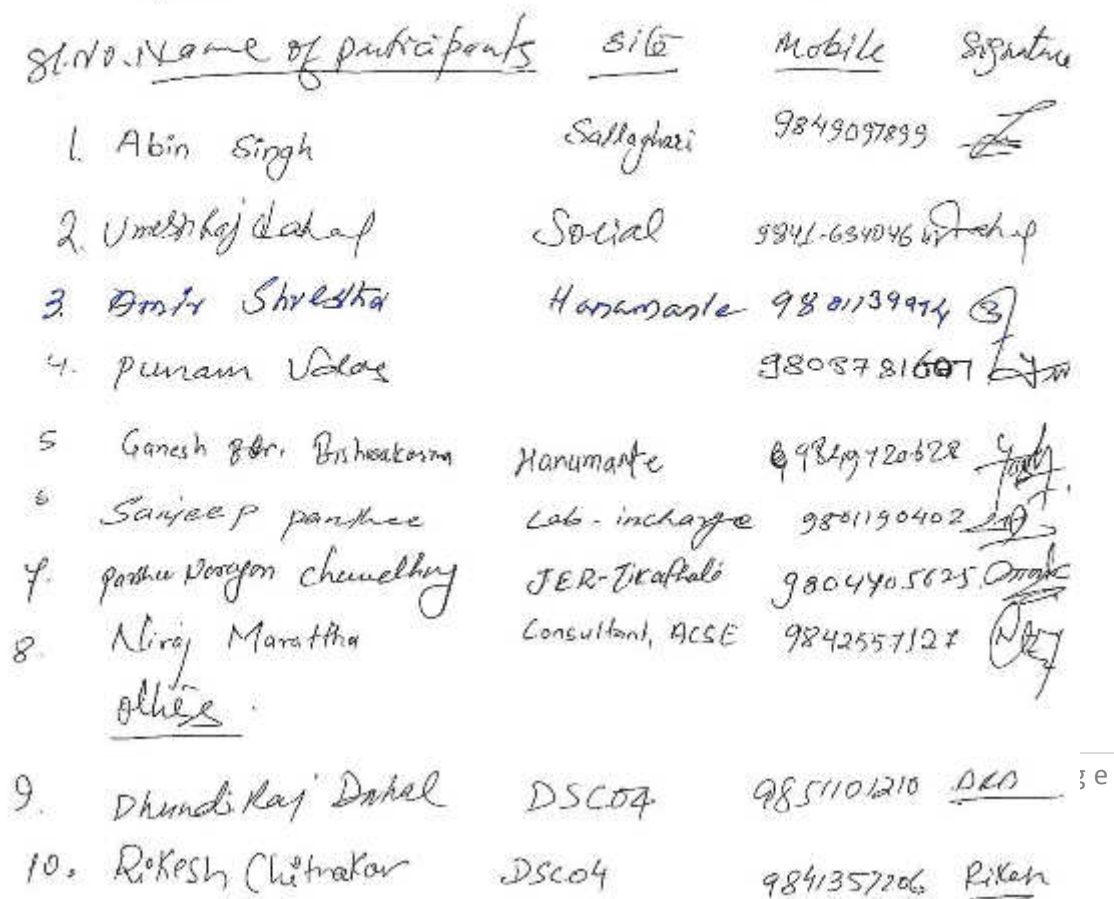 Sl.No. Name of participants Site Mobile Signature
1. Abin Singh Sallaghari 9849097899
2. Umesh Raj Dahal Social 9841-634046
3. Amir Shrestha Hanumante 9801139974
4. Punam Yadav 9803781607
5 Ganesh Bdr. Bishwakarma Hanumante 9849720628
6 Sanjeep panthee Lab-incharge 9801190402
7. Narayan Chaudhary JER- 9804405625
8. Niraj Marattha Consultant, ACSE 9842557127
others.
ge
9. Dhundi Raj Dahal DSC04 9851101210 DRD
10. Rikesh Chitrakar DSC04 9841357206 Rikesh